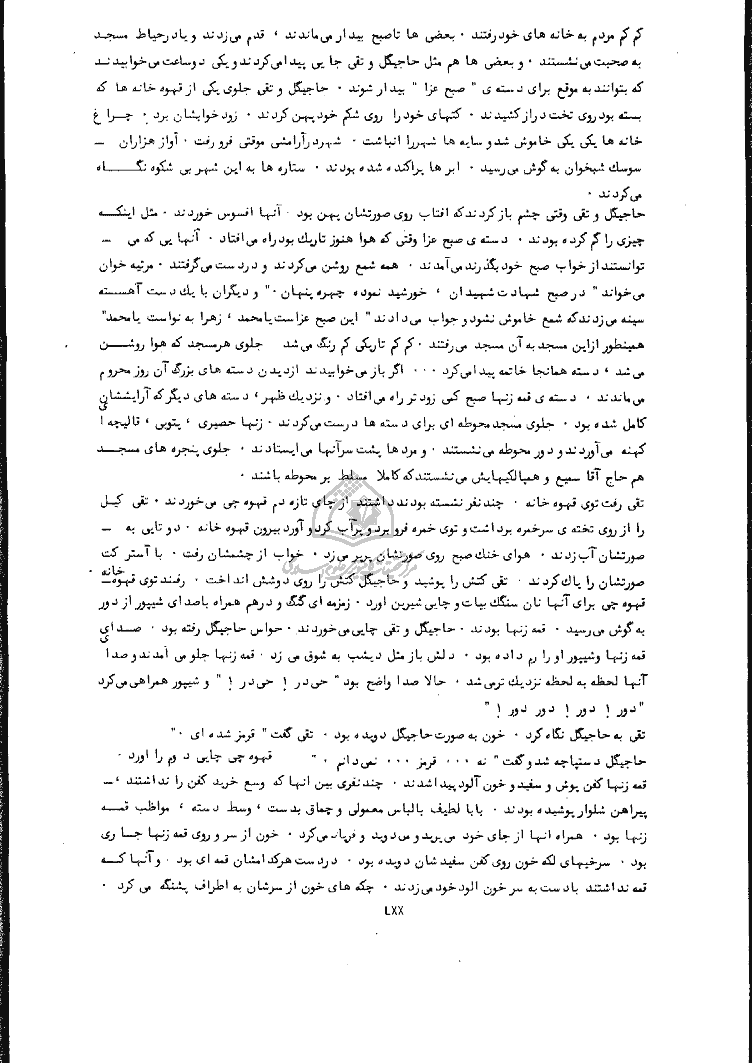 کم کم مردم به خانه های خود رفتند ۰ بعضی ها تاصبح بیدار می‌ماندند ، قدم می‌زدند و یادرحیاط مسجد
به صحبت می‌نشستند ۰ و بعضی ها هم مثل حاجیگل و تقی جایی پیدا می‌کردند و یکی دوساعت می‌خوابیدند
که بتوانند به موقع برای دسته ی " صبح عزا " بیدار شوند ۰ حاجیگل و تقی جلوی یکی از قهوه خانه ها که
بسته بود روی تخت دراز کشیدند ۰ کتهای خود را روی شکم خود پهن کردند ۰ زود خوابشان برد ۰ چراغ
خانه ها یکی یکی خاموش شد و سایه ها شهررا انباشت ۰ شهر درآرامشی موقتی فرو رفت ۰ آواز هزاران ــ
سوسک شبخوان به گوش می‌رسید ۰ ابر ها پراکنده شده بودند ۰ ستاره ها به این شهر بی شکوه نگــــاه
می‌کردند ۰
حاجیگل و تقی وقتی چشم باز کردند که افتاب روی صورتشان پهن بود ۰ آنها افسوس خوردند ۰ مثل اینکــه
چیزی را گم کرده بودند ۰ دسته ی صبح عزا وقتی که هوا هنوز تاریک بود راه می‌افتاد ۰ آنهایی که می ــ
توانستند از خواب صبح خود بگذرند می‌آمدند ۰ همه شمع روشن می‌کردند و دردست می‌گرفتند ۰ مرثیه خوان
می‌خواند " در صبح شهادت شهیدان ، خورشید نموده چهره پنهان ۰" و دیگران با یک دست آهسسته
سینه می‌زدند که شمع خاموش نشود و جواب می‌دادند " این صبح عزاست یامحمد ، زهرا به نواست یامحمد"
همینطور ازاین مسجد به آن مسجد می‌رفتند ۰ کم کم تاریکی کم رنگ می‌شد جلوی هرمسجد که هوا روشــن
می‌شد ، دسته همانجا خاتمه پیدا می‌کرد ۰۰۰ اگر باز می‌خوابیدند ازدیدن دسته های بزرگ آن روز محروم
می‌ماندند ۰ دسته ی قمه زنها صبح کمی زود تر راه می‌افتاد ۰ و نزدیک ظهر ، دسته های دیگر که آرایششان
کامل شده بود ۰ جلوی مسجد محوطه ای برای دسته ها درست می‌کردند ۰ زنها حصیری ، پتویی ، قالیچه ا ی
کهنه می‌آوردند و دور محوطه می‌نشستند ۰ و مردها پشت سرآنها می‌ایستادند ۰ جلوی پنجره های مسجــد
هم حاج آقا سمیع و همپالکیهایش می‌نشستند که کاملا مسلط بر محوطه باشند ۰
تقی رفت توی قهوه خانه ۰ چند نفر نشسته بودند داشتند از چای تازه دم قهوه چی می‌خوردند ۰ تقی کیــل
را از روی تخته ی سرخمره برداشت و توی خمره فرو برد و پرآب کرد و آورد بیرون قهوه خانه ۰ دوتایی به ــ
صورتشان آب زدند ۰ هوای خنک صبح روی صورتشان پرپر می‌زد ۰ خواب از چشمشان رفت ۰ با آستر کت
صورتشان را پاک کردند ۰ تقی کتش را پوشید و حاجیگل کتش را روی دوشش انداخت ۰ رفتند توی قهوه‌خانه ۰
قهوه چی برای آنها نان سنگک بیات و چایی شیرین اورد ۰ زمزمه ای گنگ و درهم همراه باصدای شیپور از دور
به گوش می‌رسید ۰ قمه زنها بودند ۰ حاجیگل و تقی چایی می‌خوردند ۰ حواس حاجیگل رفته بود ۰ صــدای
قمه زنها وشیپور او را رم داده بود ۰ دلش باز مثل دیشب به شوق می زد ۰ قمه زنها جلو می آمدند و صدا ی
آنها لحظه به لحظه نزدیک ترمی‌شد ۰ حالا صدا واضح بود " حی‌در ! حی‌در ! " و شیپور همراهی می‌کرد
"دور ! دور ! دور دور !"
تقی به حاجیگل نگاه کرد ۰ خون به صورت حاجیگل دویده بود ۰ تقی گفت " قرمز شده ای ۰"
حاجیگل دستپاچه شد و گفت " نه ۰۰۰ قرمز ۰۰۰ نمی‌دانم ۰" قهوه چی چایی دوم را اورد ۰
قمه زنها کفن پوش و سفید و خون آلود پیدا شدند ۰ چند نفری بین آنها که وسع خرید کفن را نداشتند ،ــ
پیراهن شلوار پوشیده بودند ۰ بابا لطیف بالباس معمولی و چماق بدست ، وسط دسته ، مواظب قمــه
زنها بود ۰ همراه انها از جای خود می‌پرید و می‌دوید و فریاد می‌کرد ۰ خون از سر و روی قمه زنها جـاری
بود ۰ سرخیهای لکه خون روی کفن سفیدشان دویده بود ۰ دردست هرکدامشان قمه ای بود ۰ و آنها کــه
قمه نداشتند بادست به سر خون الود خود می‌زدند ۰ چکه های خون از سرشان به اطراف پشنگه می کرد ۰
LXX